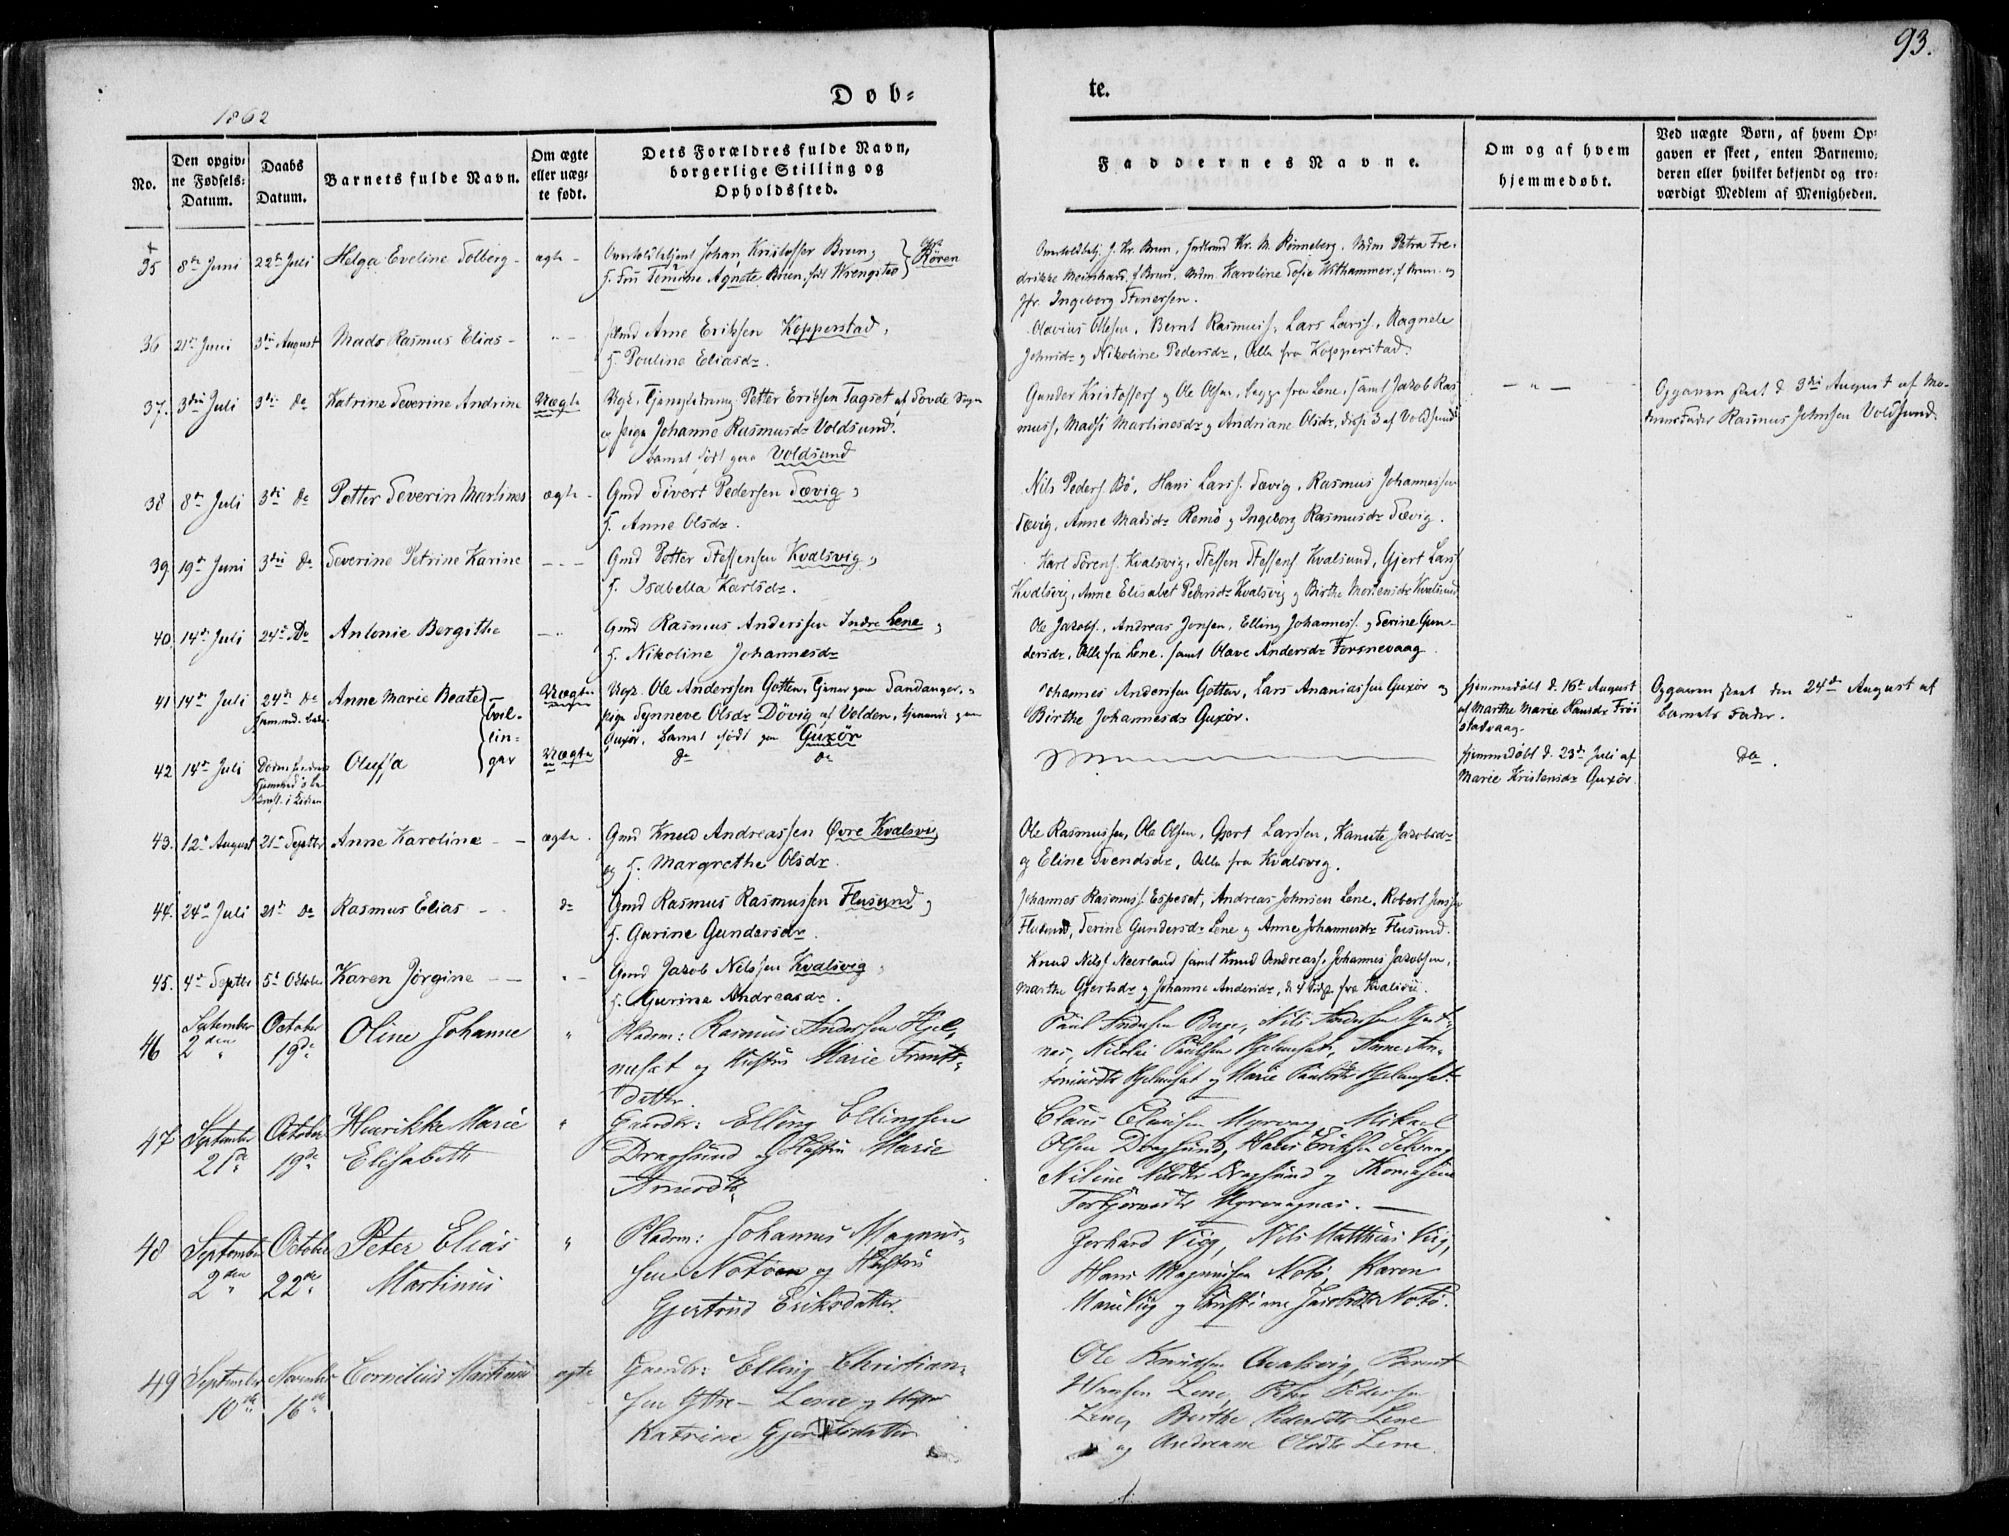 93.
Døb=
te.
1862
No.
Den opgiv=
ne Fødsels=
Datum.
Daabs
Datum.
Barnets fulde Navn.
Om ægte
eller uæg=
te født.
Dets Forældres fulde Navn,
borgerlige Stilling og
Opholdssted.
Faddernes Navne.
Om og af hvem
hjemmedøbt.
Ved uægte Børn, af hvem Op=
gaven er skeet, enten Barnemo=
deren eller hvilket bekjendt og tro=
værdigt Medlem af Menigheden.
35 8de Juni 22de Juli Helga Eveline Solberg - ægte - Johan Kristoffer Brun,
Agnete Brun, født Røren
J. Kr. Brun, Kr. M. Rønneberg, Mdm Petra Fre-
drikke Meinhard f. Brun, Mdm. Karoline Sofie Withammer f. Brun og
Jfr. Ingeborg Stenersen.
36 21de Juni 3die August Mads Rasmus Elias - Arne Eriksen Kopperstad,
H. Pouline Eliasdr.
Olavius Olsen, Bernt Rasmuss., Lars Larss., Ragnele
Johnsdr og Nikoline Pedersdr, Alle fra Kopperstad.
37. 3die Juli 3die do Katrine Severine Andrine Uægte Petter Eriksen af Sovde
og pige Johanne Rasmusdr Voldsund.
barnet født paa Voldsund
Gunder Kristoffers. og Ole Olsen, begge fra Lene, samt Jakob Ras-
muss, Madsi Martinesdr og Andriane Olsdr, disse 3 af Voldsund
— " —
Opgaven skeet d 3die August af Mo-
derens Fader Rasmus Johnsen Voldsund.
38 8de Juli 3die do Petter Severin Martines ægte - Gmd Sivert Pedersen Sævig,
H. Anne Olsdr.
Nils Peders. Bø, Hans Larss. Sævig, Rasmus Johannessen
Sævig, Anne Madsdr Remø og Ingeborg Rasmusdr Sævig.
39 19de Juni 3die do Severine Petrine Karine - - - Gmd Petter Steffensen Kvalsvig,
H. Isabella Karlsdr.
Karl Sørens. Kvalsvig, Steffen Steffens. Kvalsund, Gjert Lars
Kvalsvig, Anne Elisabet Pedersdr Kvalsvig og Birthe Mortensdr Kvalsund
40. 14de Juli 24de Do Antonie Bergithe - " Gmd Rasmus Anderssen Indre Lene,
H. Nikoline Johannesdr
Ole Jakobs., Andreas Jonsen, Elling Johanness. og Serine Gun-
dersdr, Alle fra Lene, samt Olave Andersdr Forsnevaag
41 14de Juli 24de do Anne Marie Beate Uægte Ungk. Ole Anderssen Gotten, tjener paa Sandanger,
pige Synneve Olsdr Døvig af Volden, tjenende paa
Guxør, barnet født paa Guxør
Johannes Anderssen Gotten, Lars Ananiassen Guxør og
Birthe Johannesdr Guxør.
hjemmedøbt d. 16de August
af Marthe Marie Hansdr Frøi
stadvaag.
Opgaven skeet den 24de August af
barnets Fader.
tvil-
lin-
gar
42 14de Juli Oluffa Uægte do do
hjemmedøbt d. 23de Juli af
Marie Kristensdr Guxør.
do.
43. 12te August 21de Septbr Anne Karoline - - ægte. Gmd Knud Andreassen Øvre Kvalsvig
og H. Margrethe Olsdr.
Ole Rasmussen, Ole Olsen, Gjert Larssen, Hanute Jakobsdr
og Eline Svendsdr, Alle fra Kvalsvig.
44. 24de Juli 21de do Rasmus Elias - - do Gmd Rasmus Rasmussen Flusund,
H. Gurine Gundersdr.
Johannes Rasmuss. Espeset, Andreas Johnsen Lene, Robert Jenssen
Flusund, Serine Gundersdr Lene og Anne Johannesdr Flusund.
45. 4de Septbr 5te October Karen Jørgine - - " - Gmd Jakob Nilssen Kvalsvig,
H. Gurine Andreasdr.
Knud Nilss Neerland samt Knud Andreass., Johannes Jakobsen,
Marthe Gjertsdr og Johanne Andersdr, de 4 fra Kvalsvig.
46 September 2den October 19de Oline Johanne " Pladsm: Rasmus Andersen Hjel-
meset og Hustru Marie Frants-
datter.
Paul Andersen Berge, Nils Andersen
Nicolai Paulsen Hjelmeset, Anne An-
Hjelmeset og Marie Paulsdtr Hjelmeset.
47 September 21de October 19de Henrikke Marie
Elisabeth " Gaardbr: Elling Ellingsen
Dragsund og Hustru Marie
Arnesdtr.
Claus Clausen Myrvaag, Mikael
Olsen Dragsund, Hans Eriksen
Niline Nilsdtr Dragsund og Thomasine
Torbjørnsdtr Myrvaagnes. —
48 September 2den October 22de Peter Elias
Martinus " Pladsm: Johannes Magnus-
sen Notøen og Hustru
Gjertrud Eriksdatter.
Gerhard Vig, Nils Matthias Vig,
Hans Magnussen Notø, Karen
Marie Vig og Jakobsdtr Notø.
49 September 10de November 16de Cornelius Martinus ægte Gaardbr: Elling Christian-
sen Ytre-Lene og Hustru
Katrine
Ole Knudsen Qvalsvig, Bernt
Hansen Lene, Peter Pedersen
Lene, Berthe Pedersdtr Lene
og Andreane Olsdtr Lene.